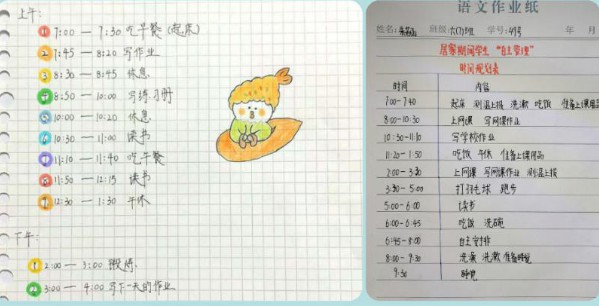 上午:
1 7:00 — 7:30 吃早餐 (起床)
2 7:45 — 8:20 写作业
3 8:30 — 8:45 休息
8:50 — 10:00 写练习册
10:00 — 10:20 休息
10:30 — 11:00 读书
11:10 — 11:40 吃午餐
11:50 — 12:15 读书
12:30 — 1:30 午休
下午:
1 2:00 — 3:00 锻炼
2 3:00 — 4:00 写下一天的作业
语文作业纸
姓名: 班级: 六(7)班 学号: 49号 年 月
居家期间学生 "自主管理"
时间规划表
时间 内容
7:00-7:40 起床 测温上报 洗漱 吃饭 准备上课用品
8:00-10:30 上网课 写网课作业
10:30-11:10 写学校作业
11:20-1:50 吃饭 午休 准备上课用品
2:00-3:30 上网课 写网课作业 测温上报
3:30-5:00 打羽毛球 跑步
5:00-6:00 读书
6:00-6:45 吃饭 洗碗
6:45-8:00 自主安排
8:00-9:30 洗澡 洗漱 准备睡觉
9:30 睡觉